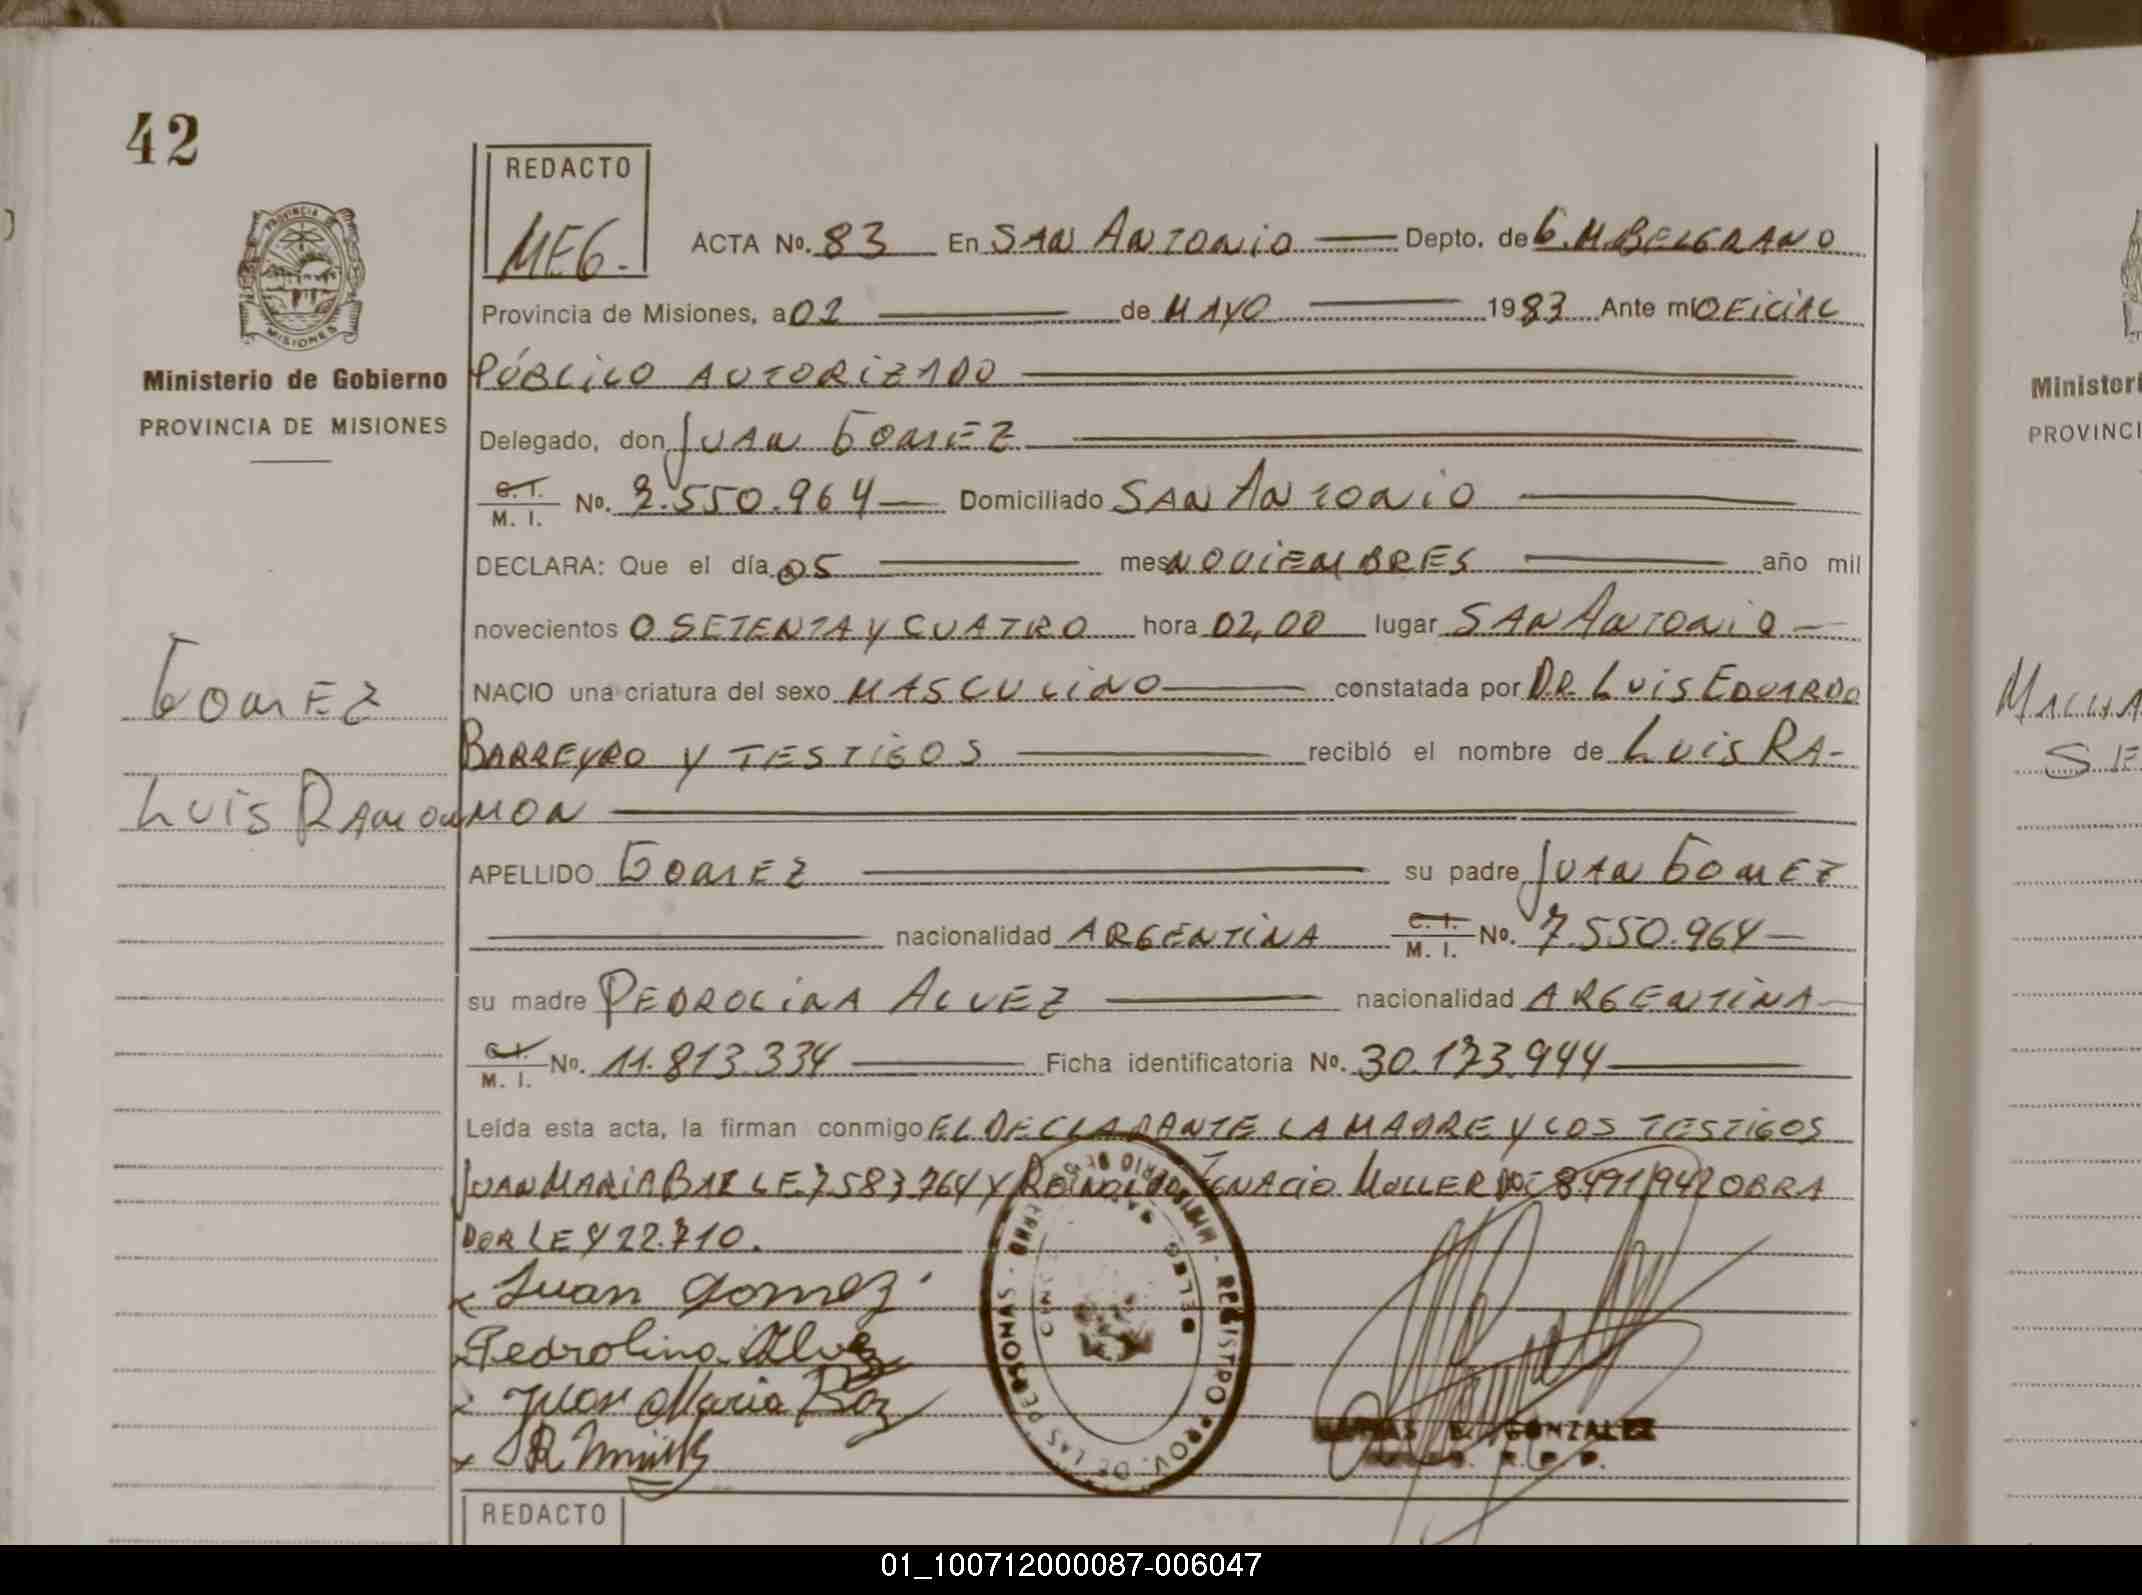 42
REDACTO
MEG.
ACTA Nº. 83 En SAN ANTONIO Depto. de G.M.BELGRANO
Provincia de Misiones, a 02 de MAYO 1983 Ante mí OFICIAL
PÚBLICO AUTORIZADO
Delegado, don JUAN GOMEZ
C.I. M. I. Nº. 7.550.964 Domiciliado SAN ANTONIO
DECLARA: Que el día 05 mes NOVIEMBRES año mil
novecientos O SETENTA Y CUATRO hora 02,00 lugar SAN ANTONIO
NACIO una criatura del sexo MASCULINO constatada por DR. LUIS EDUARDO
BARREYRO Y TESTIGOS recibló el nombre de LUIS RA-
MON
APELLIDO GOMEZ su padre JUAN GOMEZ
nacionalidad ARGENTINA C.I. M. I. Nº. 7.550.964
su madre PEDROLINA ALVEZ nacionalidad ARGENTINA
C.I. M. I. Nº. 11.813.334 Ficha identificatoria Nº. 30.173.944
Leída esta acta, la firman conmigo EL DECLARANTE LA MADRE Y LOS TESTIGOS
JUAN MARIA BAZ L.E. 7583764 Y REINOLDO IGNACIO MULLER DOC 8491942 OBRA
POR LEY 22.710.
x Juan Gomez
x Pedrolina Alvez
x Juan Maria Baz
x
GONZALEZ
MINISTERIO DE GOBIERNO - REGISTRO PROV. DE LAS PERSONAS
PROVINCIA DE MISIONES
Ministerio de Gobierno
PROVINCIA DE MISIONES
GOMEZ
LUIS RAMON
REDACTO
Ministeri
PROVINCI
01_100712000087-006047